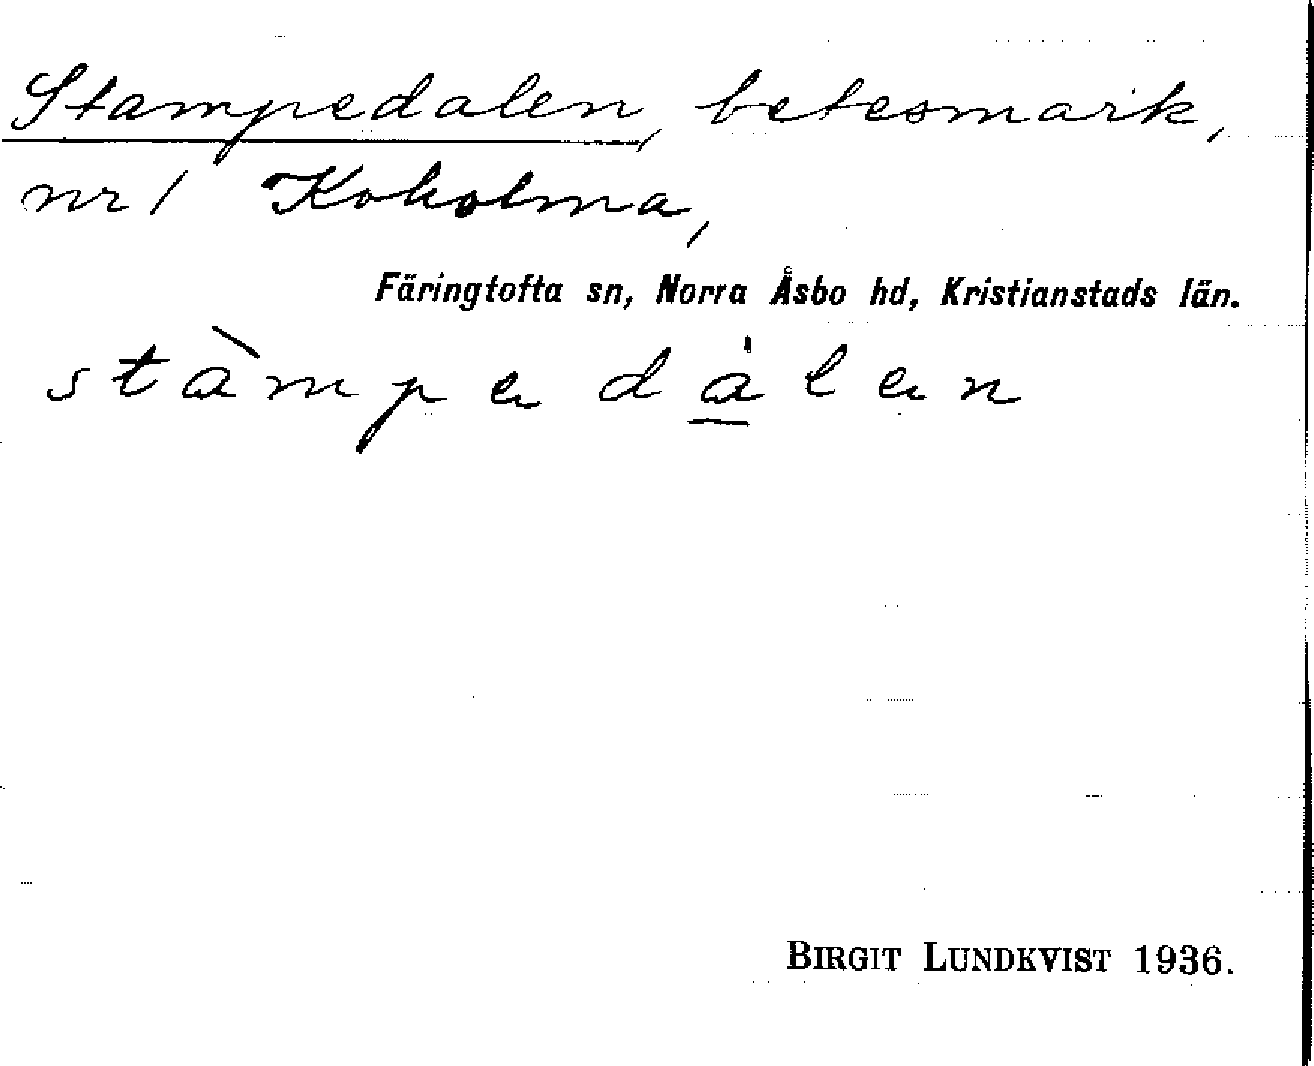 Stampedalen, betesmark,
nr 1 Koholma,
Färingtofta sn, Norra Åsbo hd, Kristianstads län.
stàmpe dálen
BIRGIT LUNDKVIST 1936.